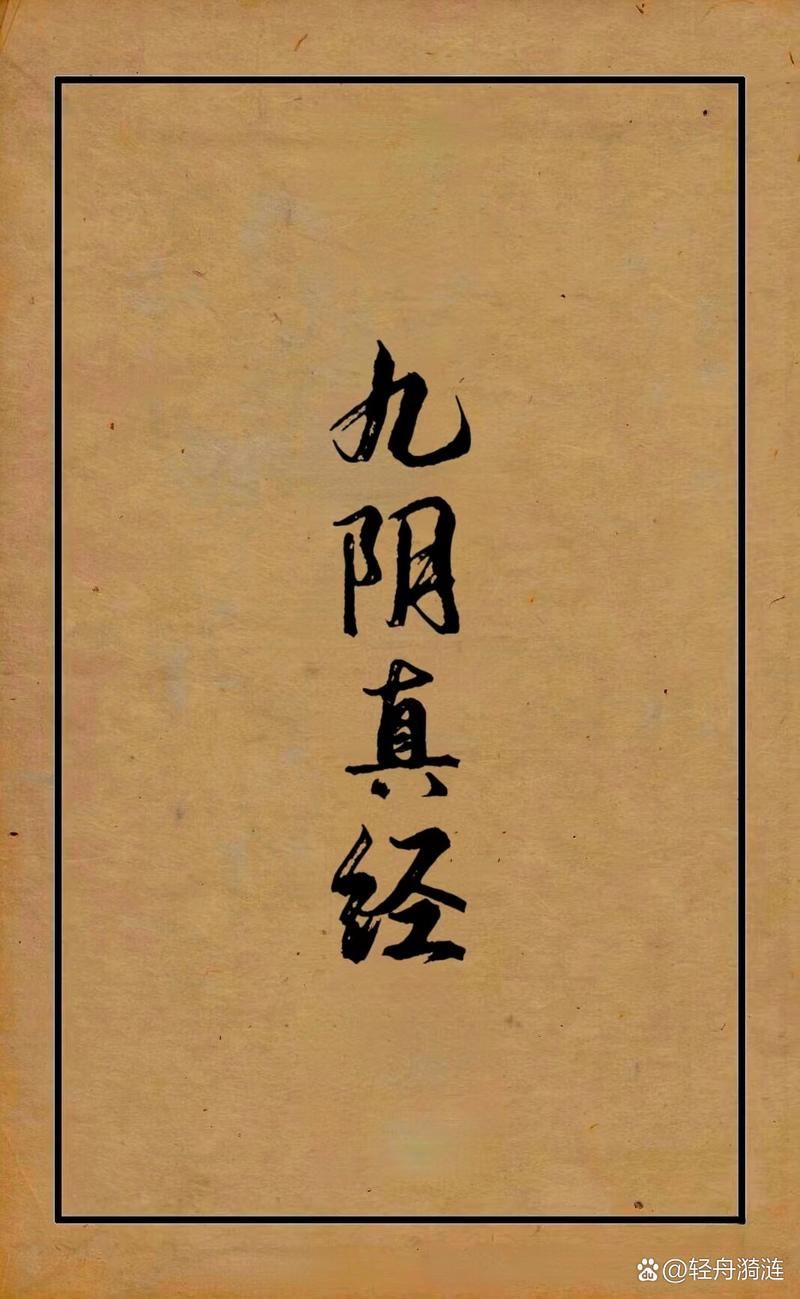 九阴真经
@轻舟漪涟